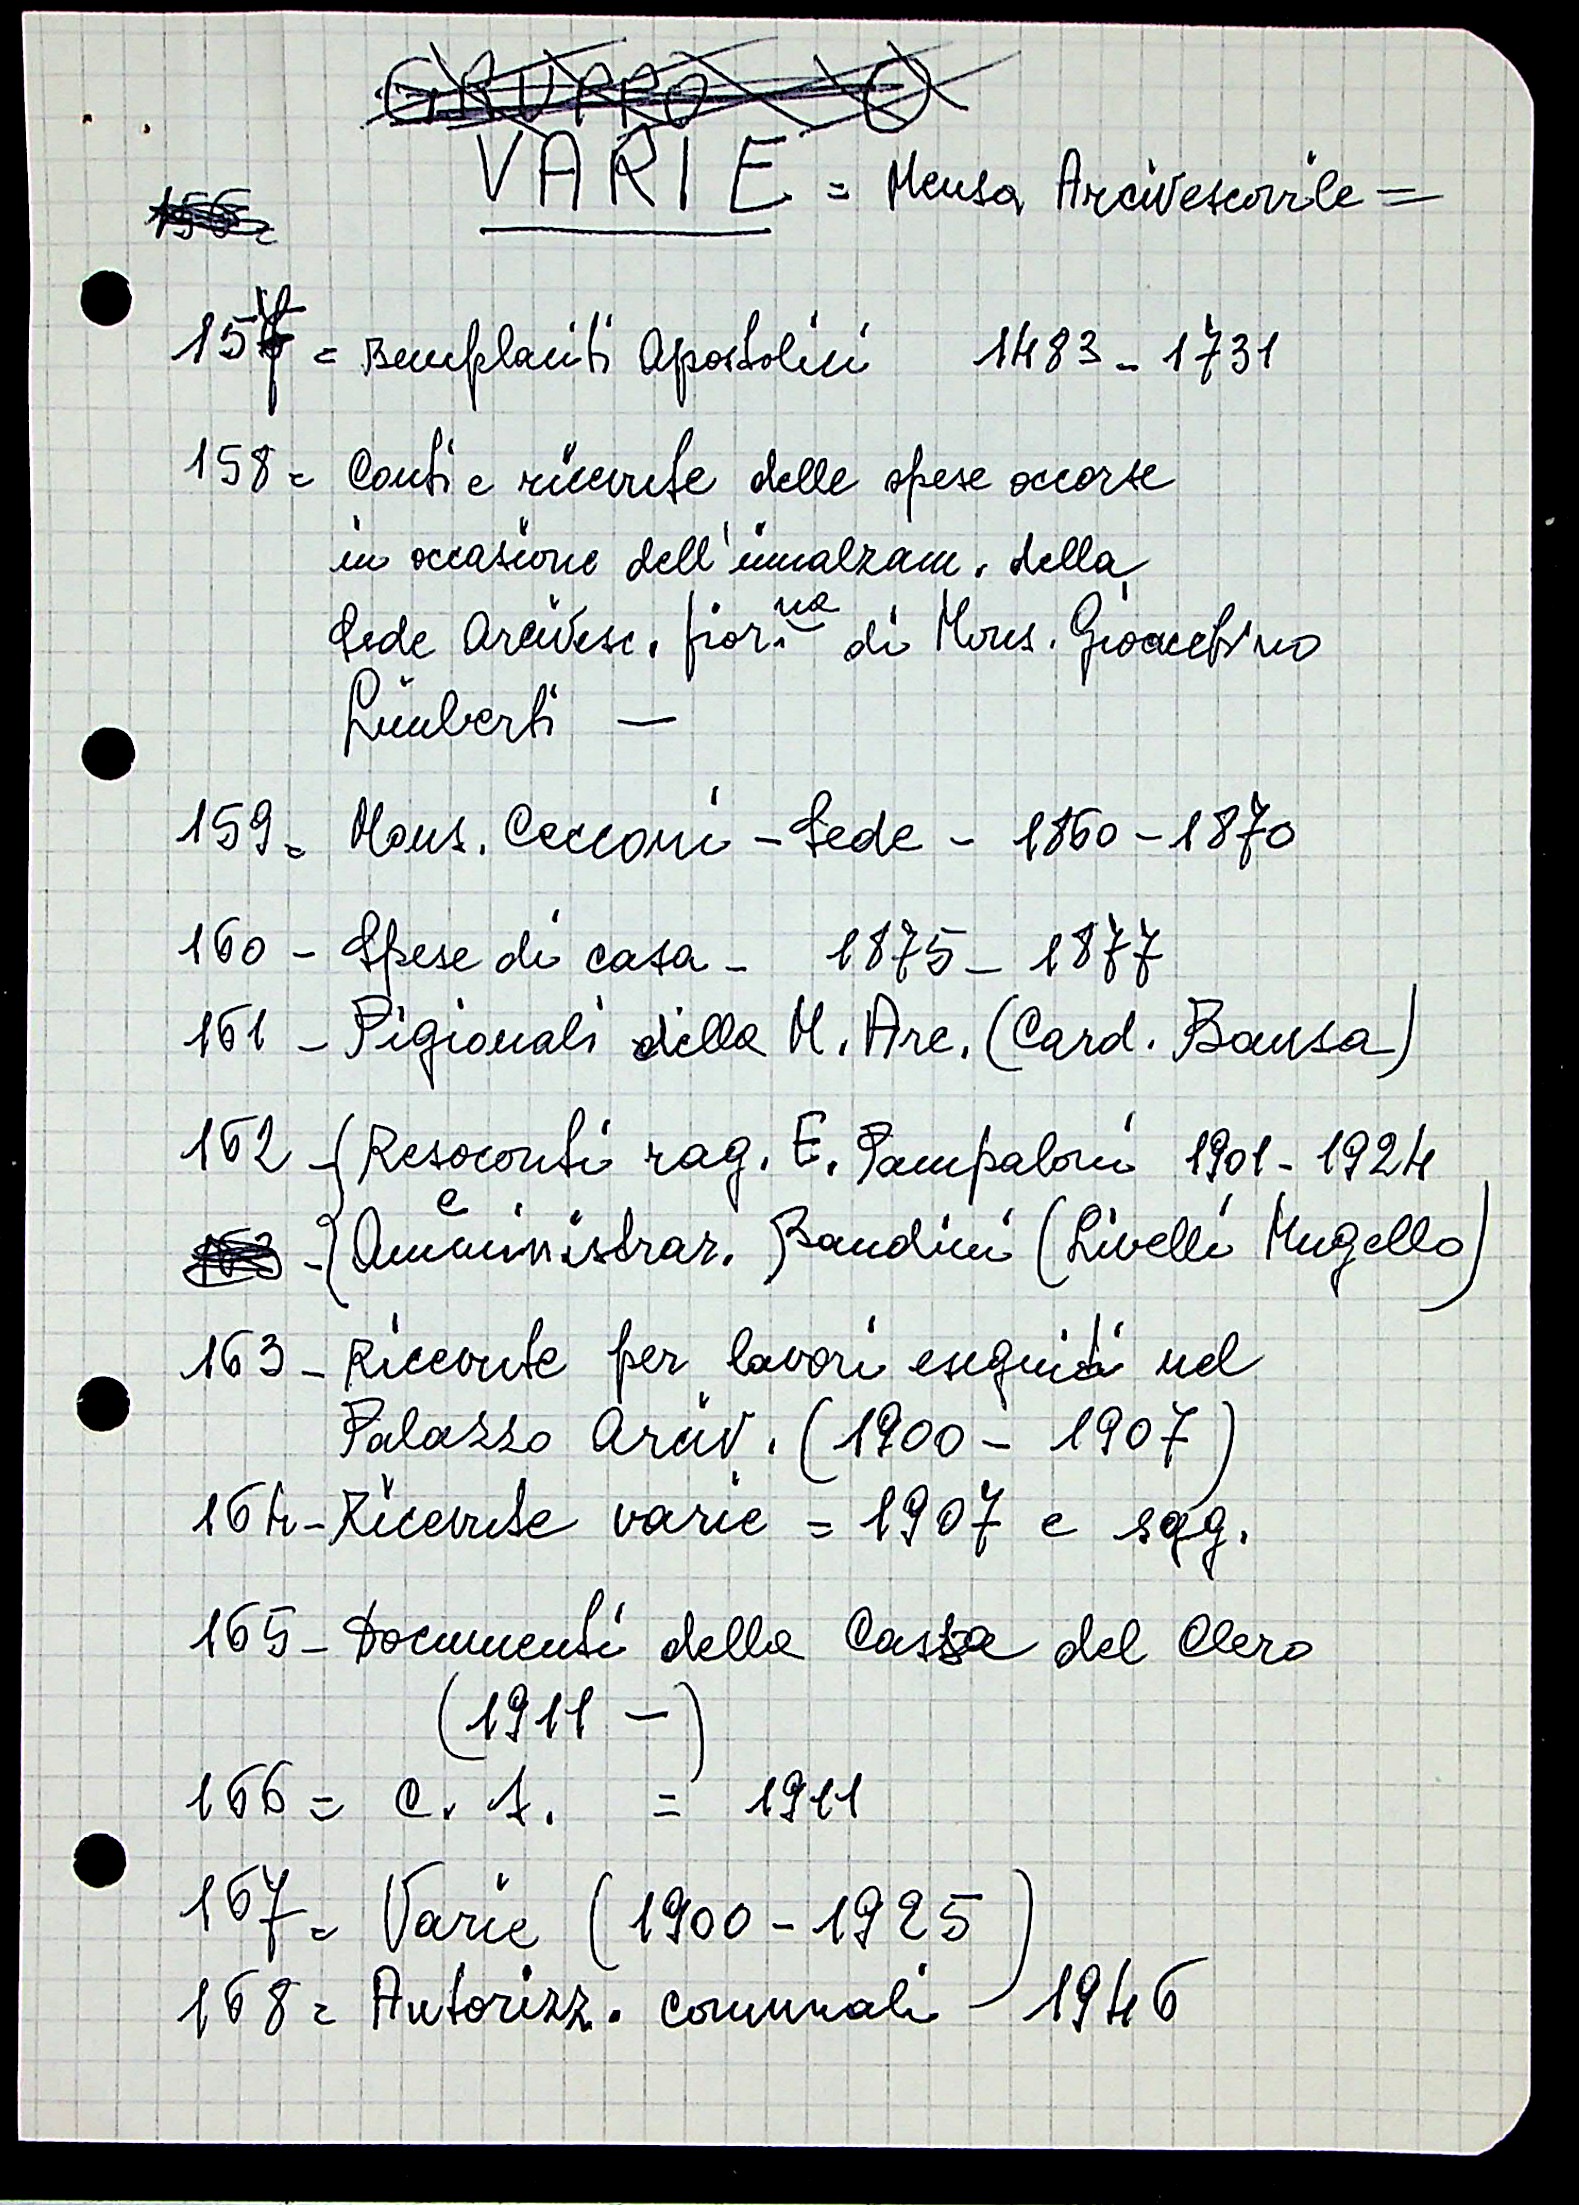 GRUPPO O
VARIE = Mensa Arcivescovile =
156=
157 = Bemplaciti Apostolici 1483 - 1731
158 = Conti e ricevute delle spese occorse
in occasione dell'innalzam. della
Sede Arcivesc. fior.na di Mons. Gioacchino
Limberti —
159 = Mons. Cecconi - Sede - 1860 - 1870
160 - Spese di casa - 1875 - 1877
161 - Pigionali della M. Arc. (Card. Bausa)
162 - { Resoconti rag. E. Pampaloni 1901 - 1924
e
163 - { Amministraz. Bandini (Livelli Mugello)
163 - Ricevute per lavori eseguiti nel
Palazzo Arciv. (1900 - 1907)
164 - Ricevute varie = 1907 e sgg.
165 - Documenti della Cassa del Clero
(1911 - )
166 = C. s. = 1911
167 = Varie (1900 - 1925)
168 = Autorizz. comunali - 1946